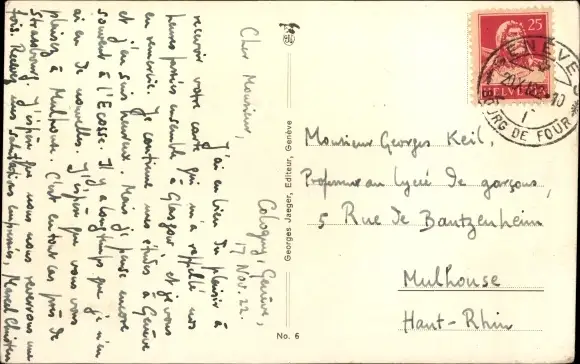 Cologny, Genève,
17 Nov. 22.
Cher Monsieur,
J'ai eu bien du plaisir à
recevoir votre carte qui m'a rappelé nos
heures passées ensemble à Glasgow et je vous
en remercie. Je continue mes études à Genève
et j'en suis heureux. Mais je pense encore
souvent à l'Ecosse. Il y a longtemps que je n'en
ai eu de nouvelles. J'espère que vous vous
plaisez à Mulhouse. C'est en tout cas près de
Strasbourg. J'espère que nous nous reverrons une
fois. Recevez mes salutations empressées, Marcel
Georges Jaeger, Editeur, Genève
No. 6
25
HELVETIA
GENÈVE
BOURG DE FOUR
Monsieur Georges Keil,
Professeur au lycée de garçons,
5 Rue de Bantzenheim
Mulhouse
Haut-Rhin